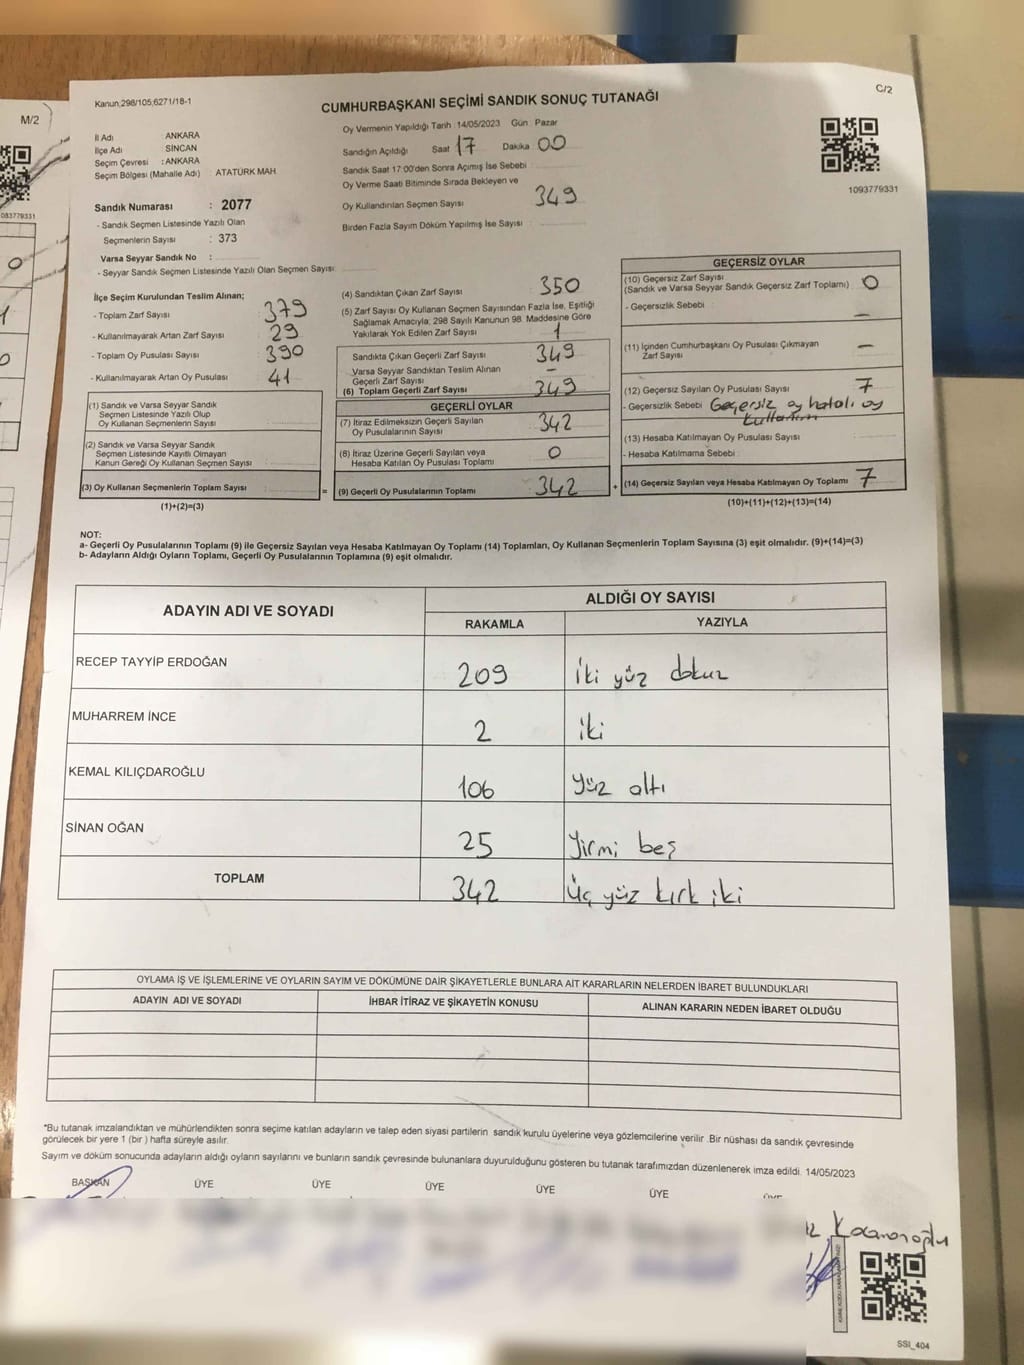 M/2
083779331
Kanun;298/105;6271/18-1
C/2
CUMHURBAŞKANI SEÇİMİ SANDIK SONUÇ TUTANAĞI
İl Adı ANKARA
İlçe Adı SİNCAN
Seçim Çevresi : ANKARA
Seçim Bölgesi (Mahalle Adı) : ATATÜRK MAH.
Sandık Numarası : 2077
- Sandık Seçmen Listesinde Yazılı Olan
Seçmenlerin Sayısı : 373
Varsa Seyyar Sandık No :
- Seyyar Sandık Seçmen Listesinde Yazılı Olan Seçmen Sayısı
Oy Vermenin Yapıldığı Tarih :14/05/2023 Gün : Pazar
Sandığın Açıldığı Saat 17 Dakika 00
Sandık Saat 17:00'den Sonra Açımış İse Sebebi
Oy Verme Saati Bitiminde Sırada Bekleyen ve
Oy Kullandırılan Seçmen Sayısı 349
Birden Fazla Sayım Döküm Yapılmış İse Sayısı
1093779331
İlçe Seçim Kurulundan Teslim Alınan;
- Toplam Zarf Sayısı : 379
- Kullanılmayarak Artan Zarf Sayısı : 29
- Toplam Oy Pusulası Sayısı : 390
- Kullanılmayarak Artan Oy Pusulası : 41
(1) Sandık ve Varsa Seyyar Sandık
Seçmen Listesinde Yazılı Olup
Oy Kullanan Seçmenlerin Sayısı :
(2) Sandık ve Varsa Seyyar Sandık
Seçmen Listesinde Kayıtlı Olmayan
Kanun Gereği Oy Kullanan Seçmen Sayısı :
(3) Oy Kullanan Seçmenlerin Toplam Sayısı :
(1)+(2)=(3)
(4) Sandıktan Çıkan Zarf Sayısı : 350
(5) Zarf Sayısı Oy Kullanan Seçmen Sayısından Fazla İse, Eşitliği
Sağlamak Amacıyla; 298 Sayılı Kanunun 98. Maddesine Göre
Yakılarak Yok Edilen Zarf Sayısı : 1
Sandıkta Çıkan Geçerli Zarf Sayısı : 349
Varsa Seyyar Sandıktan Teslim Alınan
Geçerli Zarf Sayısı : –
(6) Toplam Geçerli Zarf Sayısı : 349
GEÇERLİ OYLAR
(7) İtiraz Edilmeksizin Geçerli Sayılan
Oy Pusulalarının Sayısı : 342
(8) İtiraz Üzerine Geçerli Sayılan veya
Hesaba Katılan Oy Pusulası Toplamı : 0
= (9) Geçerli Oy Pusulalarının Toplamı : 342 +
GEÇERSİZ OYLAR
(10) Geçersiz Zarf Sayısı
(Sandık ve Varsa Seyyar Sandık Geçersiz Zarf Toplamı) : 0
- Geçersizlik Sebebi : –
(11) İçinden Cumhurbaşkanı Oy Pusulası Çıkmayan
Zarf Sayısı : –
(12) Geçersiz Sayılan Oy Pusulası Sayısı : 7
- Geçersizlik Sebebi : Geçersiz oy hatalı oy
kullanım
(13) Hesaba Katılmayan Oy Pusulası Sayısı :
- Hesaba Katılmama Sebebi :
(14) Geçersiz Sayılan veya Hesaba Katılmayan Oy Toplamı : 7
(10)+(11)+(12)+(13)=(14)
NOT:
a- Geçerli Oy Pusulalarının Toplamı (9) ile Geçersiz Sayılan veya Hesaba Katılmayan Oy Toplamı (14) Toplamları, Oy Kullanan Seçmenlerin Toplam Sayısına (3) eşit olmalıdır. (9)+(14)=(3)
b- Adayların Aldığı Oyların Toplamı, Geçerli Oy Pusulalarının Toplamına (9) eşit olmalıdır.
ADAYIN ADI VE SOYADI ALDIĞI OY SAYISI
RAKAMLA YAZIYLA
RECEP TAYYİP ERDOĞAN 209 İki yüz dokuz
MUHARREM İNCE 2 iki
KEMAL KILIÇDAROĞLU 106 yüz altı
SİNAN OĞAN 25 Yirmi beş
TOPLAM 342 Üç yüz kırk iki
OYLAMA İŞ VE İŞLEMLERİNE VE OYLARIN SAYIM VE DÖKÜMÜNE DAİR ŞİKAYETLERLE BUNLARA AİT KARARLARIN NELERDEN İBARET BULUNDUKLARI
ADAYIN ADI VE SOYADI İHBAR İTİRAZ VE ŞİKAYETİN KONUSU ALINAN KARARIN NEDEN İBARET OLDUĞU
*Bu tutanak imzalandıktan ve mühürlendikten sonra seçime katılan adayların ve talep eden siyasi partilerin sandık kurulu üyelerine veya gözlemcilerine verilir .Bir nüshası da sandık çevresinde
görülecek bir yere 1 (bir ) hafta süreyle asılır.
Sayım ve döküm sonucunda adayların aldığı oyların sayılarını ve bunların sandık çevresinde bulunanlara duyurulduğunu gösteren bu tutanak tarafımızdan düzenlenerek imza edildi. 14/05/2023
BAŞKAN ÜYE ÜYE ÜYE ÜYE ÜYE
SSI_404